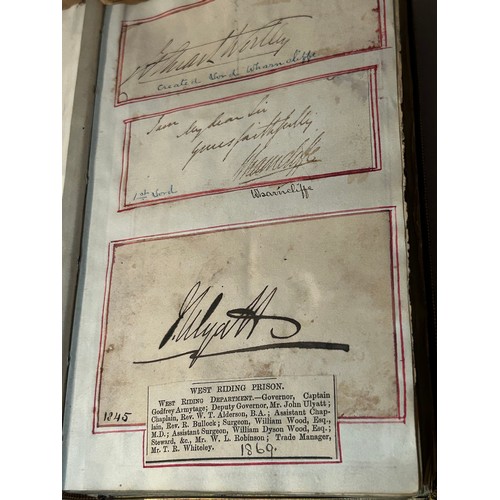 J Stuart Wortley
created Lord Wharncliffe
I am My dear Sir
yours faithfully
Wharncliffe
1st Lord
Wharncliffe
J. Ulyatt
1845
WEST RIDING PRISON.
WEST RIDING DEPARTMENT.—Governor, Captain
Godfrey Armytage; Deputy Governor, Mr. John Ulyatt;
Chaplain, Rev. W. T. Alderson, B.A.; Assistant Chap-
lain, Rev. R. Bullock; Surgeon, William Wood, Esq.,
M.D.; Assistant Surgeon, William Dyson Wood, Esq.;
Steward, &c., Mr. W. L. Robinson; Trade Manager,
Mr. T. R. Whiteley.
1869.